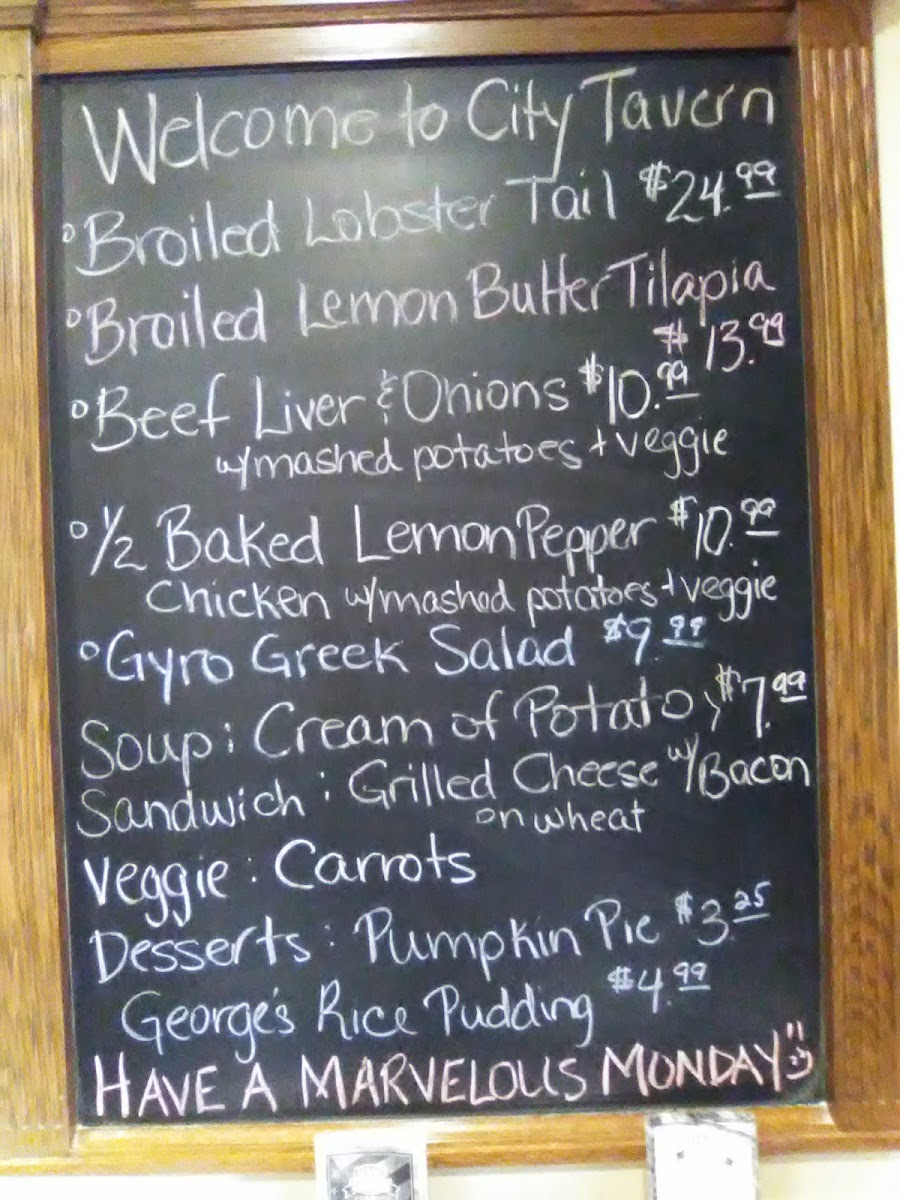 Welcome to City Tavern
° Broiled Lobster Tail $24.99
° Broiled Lemon Butter Tilapia
$13.99
° Beef Liver & Onions $10.99
w/mashed potatoes + veggie
° 1/2 Baked Lemon Pepper $10.99
Chicken w/mashed potatoes + veggie
° Gyro Greek Salad $9.99
Soup: Cream of Potato, $7.99
Sandwich: Grilled Cheese w/Bacon
on wheat
Veggie: Carrots
Desserts: Pumpkin Pie $3.25
George's Rice Pudding $4.99
HAVE A MARVELOUS MONDAY!!